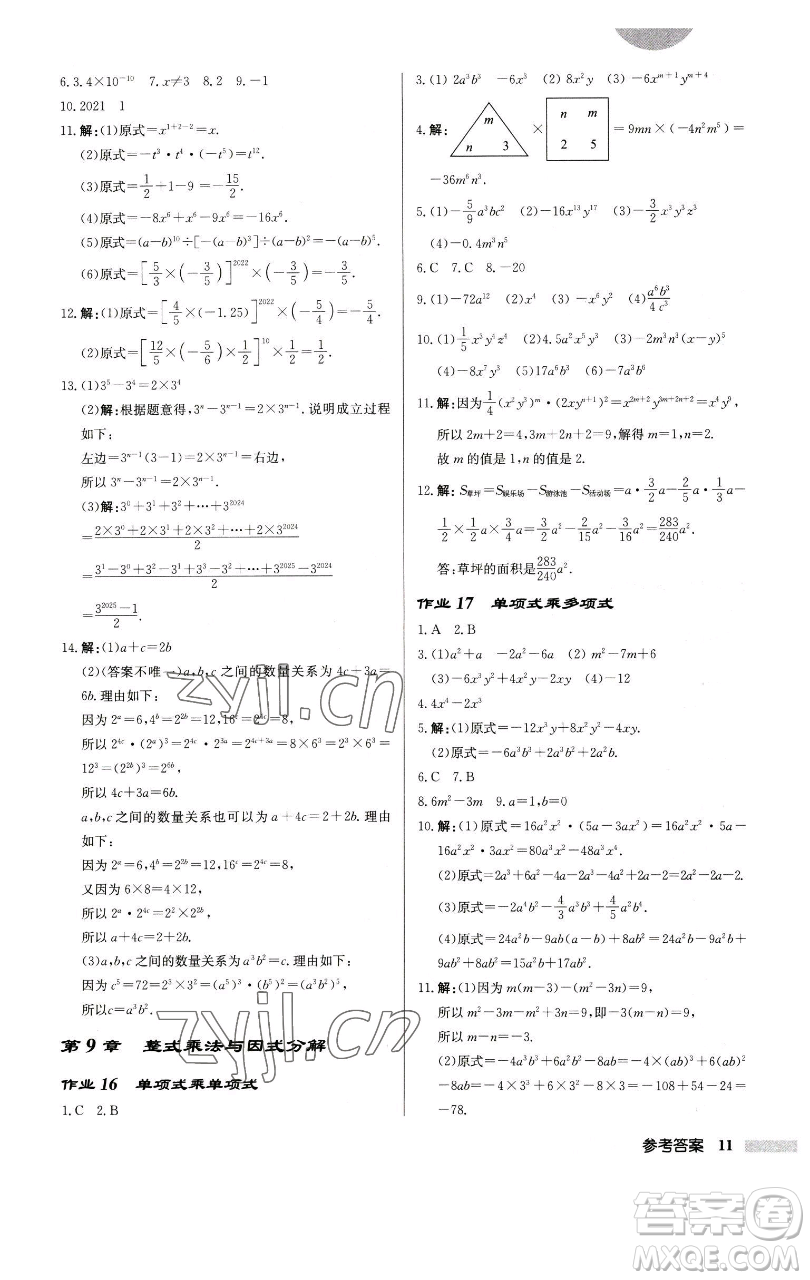 6.3.4×10⁻¹⁰ 7.x≠3 8.2 9.-1
10.2021 1
11.解:(1)原式=x¹⁺²⁻²=x.
(2)原式=-t³·t⁴·(-t⁵)=t¹².
(3)原式=1/2+1-9=-15/2.
(4)原式=-8x⁶+x⁶-9x⁶=-16x⁶.
(5)原式=(a-b)¹⁰÷[-(a-b)³]÷(a-b)²=-(a-b)⁵.
(6)原式=[5/3×(-3/5)]²⁰²²×(-3/5)=-3/5.
12.解:(1)原式=[4/5×(-1.25)]²⁰²²×(-5/4)=-5/4.
(2)原式=[12/5×(-5/6)×1/2]¹⁰×1/2=1/2.
13.(1)3⁵-3⁴=2×3⁴
(2)解:根据题意得,3ⁿ-3ⁿ⁻¹=2×3ⁿ⁻¹.说明成立过程
如下:
左边=3ⁿ⁻¹(3-1)=2×3ⁿ⁻¹=右边,
所以3ⁿ-3ⁿ⁻¹=2×3ⁿ⁻¹.
(3)解:3⁰+3¹+3²+…+3²⁰²⁴
=(2×3⁰+2×3¹+2×3²+…+2×3²⁰²⁴)/2
=(3¹-3⁰+3²-3¹+3³-3²+…+3²⁰²⁵-3²⁰²⁴)/2
=(3²⁰²⁵-1)/2.
14.解:(1)a+c=2b
(2)(答案不唯一)a,b,c之间的数量关系为4c+3a=
6b.理由如下:
因为2ᵃ=6,4ᵇ=2²ᵇ=12,16ᶜ=2⁴ᶜ=8,
所以2⁴ᶜ·(2ᵃ)³=2⁴ᶜ·2³ᵃ=2⁴ᶜ⁺³ᵃ=8×6³=
12³=(2²ᵇ)³=2⁶ᵇ,
所以4c+3a=6b.
a,b,c之间的数量关系也可以为a+4c=2+2b.理由
如下:
因为2ᵃ=6,4ᵇ=2²ᵇ=12,16ᶜ=2⁴ᶜ=8,
又因为6×8=4×12,
所以2ᵃ·2⁴ᶜ=2²×2²ᵇ,
所以a+4c=2+2b.
(3)a,b,c之间的数量关系为a³b²=c.理由如下:
因为c⁵=72=2³×3²=(a⁵)³·(b⁵)²=(a³b²)⁵,
所以c=a³b².
第9章 整式乘法与因式分解
作业16 单项式乘单项式
1.C 2.B
3.(1)2a³b³ -6x³ (2)8x⁷ (3)-6xᵐ⁺¹yᵐ⁺⁴
4.解: m n 3 × n m 2 5 =9mn×(-4n²m⁵)=
-36m⁶n³.
5.(1)-5/9a³bc² (2)-16x¹³y¹⁷ (3)-3/2x³y³z³
(4)-0.4m³n⁵
6.C 7.C 8.-20
9.(1)-72a¹² (2)x⁴ (3)-x⁶y² (4)a⁶b³/4c³
10.(1)1/5x³y⁵z⁴ (2)4.5a²x⁵ (3)-2m³n³(x-y)⁵
(4)-8x⁷y³ (5)17a⁶b³ (6)-6x³y³
11.解:因为1/4(x²y³)ᵐ·(2xyⁿ⁺¹)²=x²ᵐ⁺²y³ᵐ⁺²ⁿ⁺²=x⁴y⁹,
所以2m+2=4,3m+2n+2=9,解得m=1,n=2.
故m的值是1,n的值是2.
12.解:S草坪=S娱乐场-S游泳池-S活动场=a·3/2a-2/5a·1/3a-
1/2×1/2a×3/4a=3/2a²-2/15a²-3/16a²=283/240a².
答:草坪的面积是283/240a².
作业17 单项式乘多项式
1.A 2.B
3.(1)a²+a -2a²-2a (2)m²-7m+6
(3)-6x³y²+3x²y²-3xy³
4.4x⁴-2x³
5.解:(1)原式=-12x³y+8x²y²-4xy.
(2)原式=-6a³b³+2a³b²+2a²b.
6.C 7.B
8.6m²-3m 9.a=1,b=0
10.解:(1)原式=16a²x²·(5a-3ax²)=16a²x²·5a-
16a²x²·3ax²=80a³x²-48a³x⁴.
(2)原式=2a³+6a²-2a-4a³-4a²=-2a³+2a²-2a.
(3)原式=-2a⁴b²-4/3a³b³+4/5a²b².
(4)原式=24a²b-9ab(a-b)+8ab²=24a²b-9a²b+
9ab²+8ab²=15a²b+17ab².
11.解:(1)因为m(m-3)-(m²-3n)=9,
所以m²-3m-m²+3n=9,即-m+n=3,
所以m-n=-3.
(2)原式=-4a³b³+6a²b²-8ab=-4(ab)³+6(ab)²
-8ab=-4×3³+6×3²-8×3=-108+54-24=
-78.
参考答案 11
zyjl.cn
zyjl.cn
答案圈
MXQE.COM